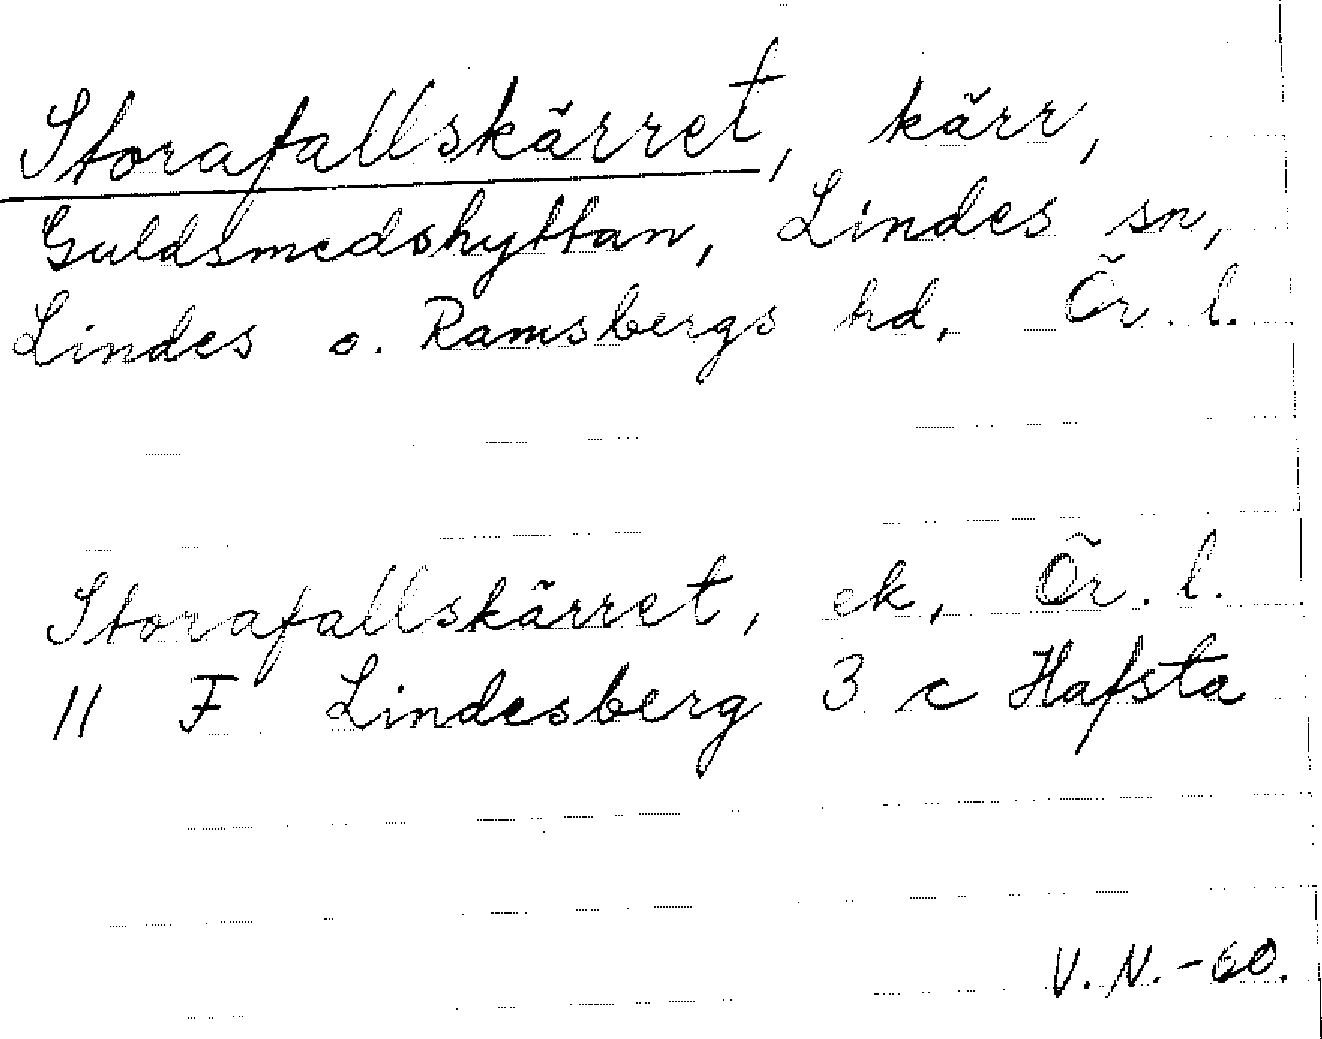 Storafallskärret, kärr,
Guldsmedshyttan, Lindes sn,
Lindes o. Ramsbergs hd, Ör. l.
Storafallskärret, ek, Ör. l.
11 F Lindesberg 3 c Hafsta
V. N. -60.